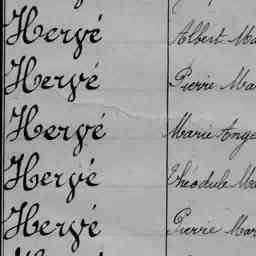 Hervé Albert Ma
Hervé Pierre Ma
Hervé Marie Ange
Hervé Théodule Ma
Hervé Pierre Mar